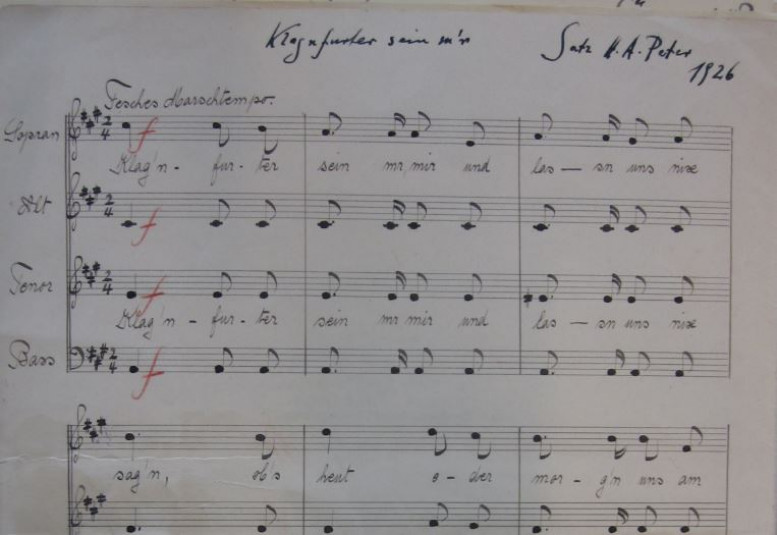 Klagnfurter sein m'r
Satz H. A. Peter
1926
Fesches Marschtempo.
Sopran
2/4
f
Klag'n - fur - ter sein mr mir und las — sn uns nix
Alt
2/4
f
Tenor
2/4
f
Klag'n - fur - ter sein mr mir und las — sn uns nix
Bass
2/4
f
sag'n, ob's heut o - der mor - g'n uns am